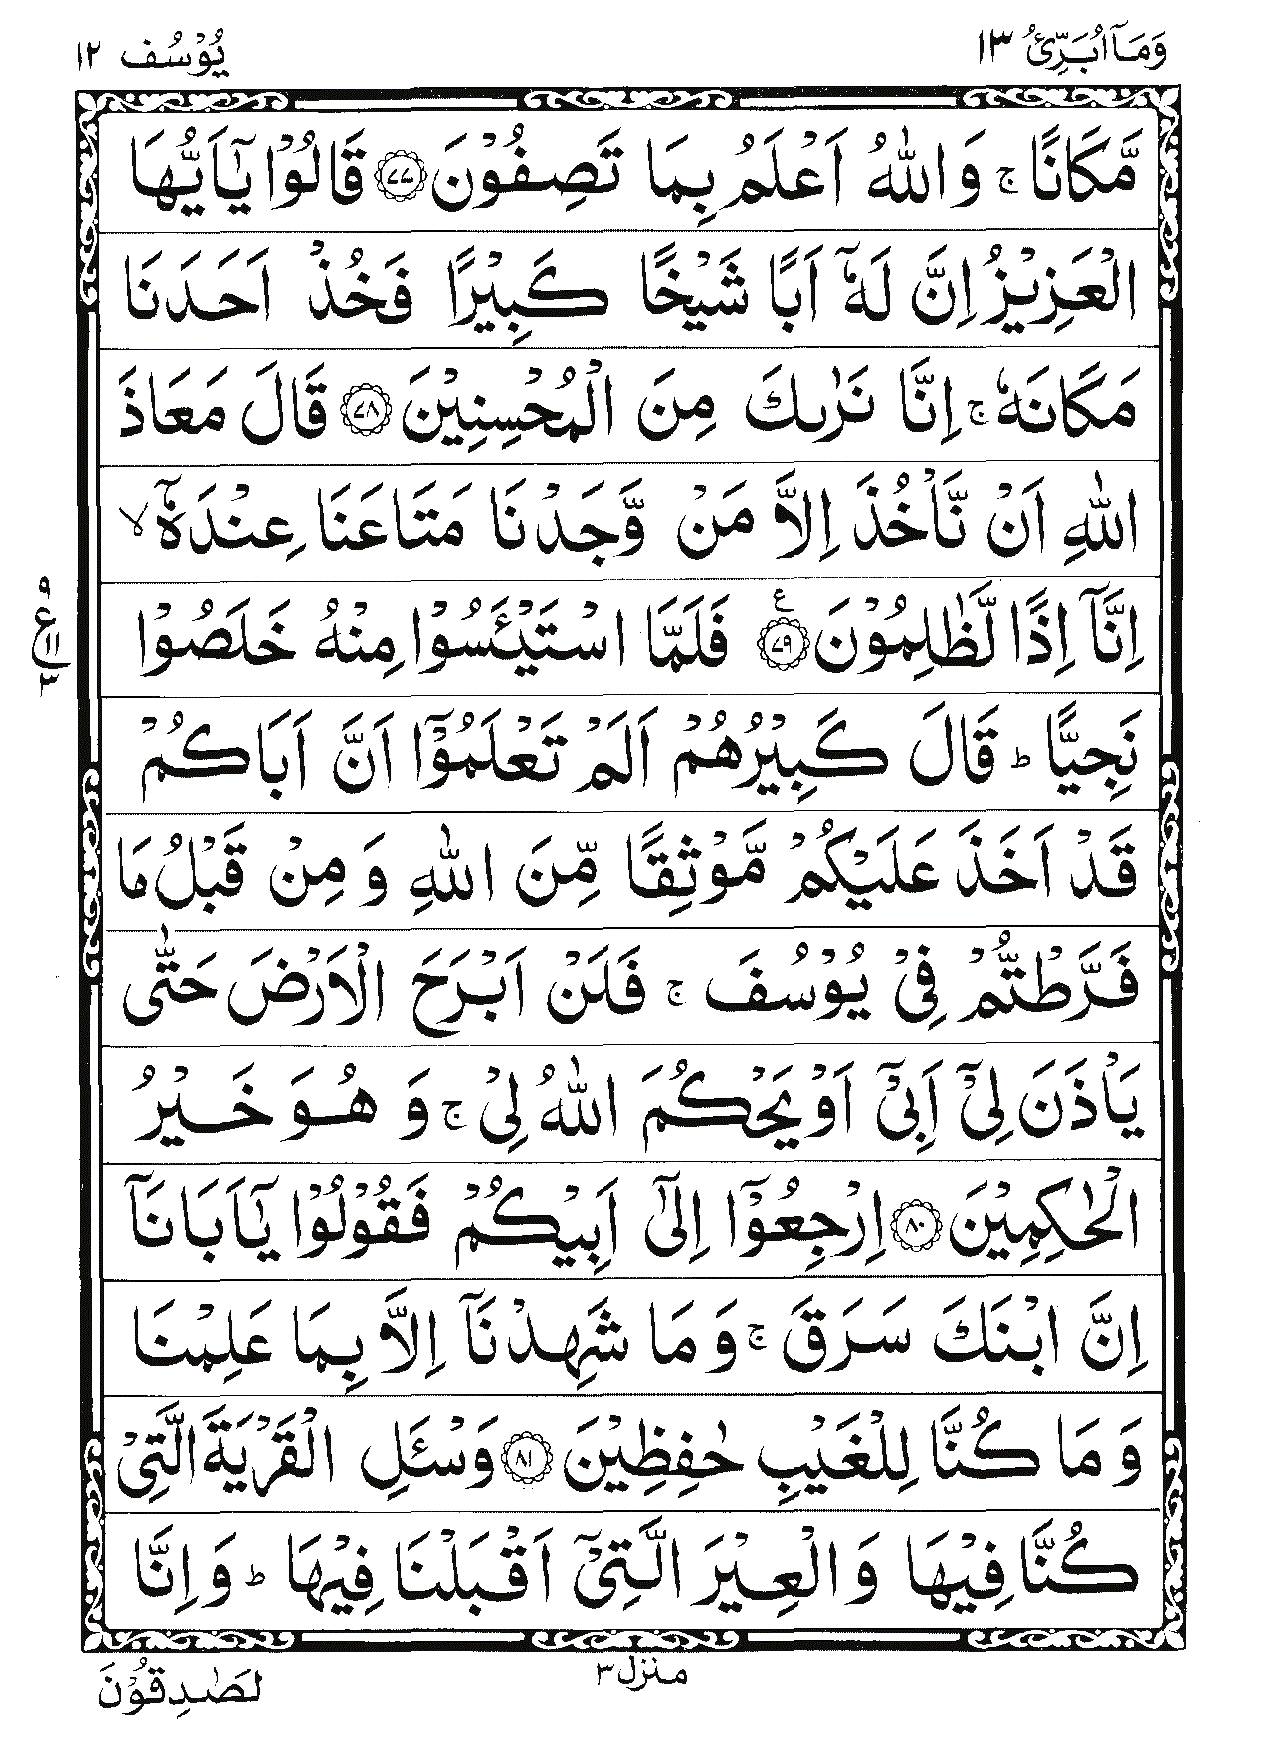 وَمَاۤ اُبَرِّئُ ١٣
يُوْسُف ١٢
مَّكَانًا ۚ وَاللّٰهُ اَعْلَمُ بِمَا تَصِفُوْنَ ﴿٧٧﴾ قَالُوْا يٰۤاَيُّهَا
الْعَزِيْزُ اِنَّ لَهٗۤ اَبًا شَيْخًا كَبِيْرًا فَخُذْ اَحَدَنَا
مَكَانَهٗ ۚ اِنَّا نَرٰىكَ مِنَ الْمُحْسِنِيْنَ ﴿٧٨﴾ قَالَ مَعَاذَ
اللّٰهِ اَنْ نَّاْخُذَ اِلَّا مَنْ وَّجَدْنَا مَتَاعَنَا عِنْدَهٗۤ ۙ
اِنَّاۤ اِذًا لَّظٰلِمُوْنَ ﴿٧٩﴾ ع فَلَمَّا اسْتَيْـَٔسُوْا مِنْهُ خَلَصُوْا
٩
ع
١١
٣
نَجِيًّا ؕ قَالَ كَبِيْرُهُمْ اَلَمْ تَعْلَمُوْۤا اَنَّ اَبَاكُمْ
قَدْ اَخَذَ عَلَيْكُمْ مَّوْثِقًا مِّنَ اللّٰهِ وَمِنْ قَبْلُ مَا
فَرَّطْتُّمْ فِيْ يُوْسُفَ ۚ فَلَنْ اَبْرَحَ الْاَرْضَ حَتّٰى
يَاْذَنَ لِيْۤ اَبِيْۤ اَوْ يَحْكُمَ اللّٰهُ لِيْ ۚ وَهُوَ خَيْرُ
الْحٰكِمِيْنَ ﴿٨٠﴾ اِرْجِعُوْۤا اِلٰۤى اَبِيْكُمْ فَقُوْلُوْا يٰۤاَبَانَاۤ
اِنَّ ابْنَكَ سَرَقَ ۚ وَمَا شَهِدْنَاۤ اِلَّا بِمَا عَلِمْنَا
وَمَا كُنَّا لِلْغَيْبِ حٰفِظِيْنَ ﴿٨١﴾ وَسْـَٔلِ الْقَرْيَةَ الَّتِيْ
كُنَّا فِيْهَا وَالْعِيْرَ الَّتِيْۤ اَقْبَلْنَا فِيْهَا ؕ وَاِنَّا
منزل ٣
لَصٰدِقُوْنَ